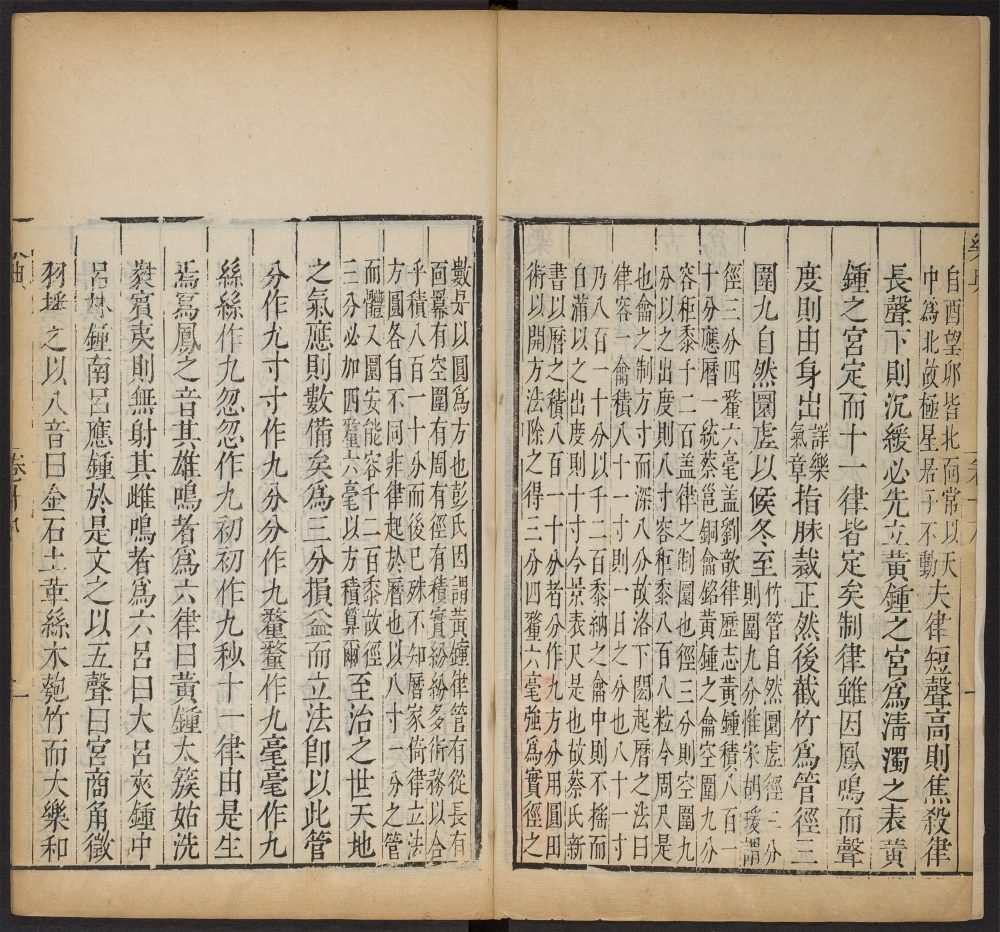 自酉望卯皆北面常以天
中爲北故極星居子不動夫律短聲高則焦殺律
長聲下則沉緩必先立黃鍾之宮爲淸濁之表黃
鍾之宮定而十一律皆定矣制律雖因鳳鳴而聲
度則由身出詳樂氣章指脉裁正然後截竹爲管徑三
圍九自然圜虗以候冬至竹管自然圜虗徑三分
則圍九分惟宋胡瑗謂
徑三分四釐六毫盖劉歆律歷志黃鍾積八百一
十分應曆一統蔡邕銅龠銘黃鍾之龠空圍九分
容秬黍千二百盖律之制圜也徑三分則空圍九
分以之出度則八寸容秬黍八百八粒今周尺是
也龠之制方寸而深八分故洛下閎起曆之法曰
律容一龠積八十一寸則一日之分也八十一寸
乃八百一十分以千二百黍納之龠中則不摇而
自滿以之出度則十寸今景表尺是也故蔡氏新
書以曆之積八百一十分者分作九方分用圓田
術以開方法除之得三分四釐六毫強爲實徑之
數是以圓爲方也彭氏因謂黃鍾律管有從長有
面羃有空圍有周有徑有積實紛紛多術務以合
乎積八百一十分而後已殊不知曆家倚律立法
方圓各自不同非律起於曆也以八寸一分之管
而體又圜安能容千二百黍故徑
三分必加四釐六毫以方積算爾至治之世天地
之氣應則數備矣爲三分損益而立法卽以此管
分作九寸寸作九分分作九釐釐作九毫毫作九
絲絲作九忽忽作九初初作九秒十一律由是生
焉寫鳳之音其雄鳴者爲六律曰黃鍾太簇姑洗
蕤賓夷則無射其雌鳴者爲六呂曰大呂夾鍾中
呂林鍾南呂應鍾於是文之以五聲曰宮商角徵
羽播之以八音曰金石土革絲木匏竹而大樂和